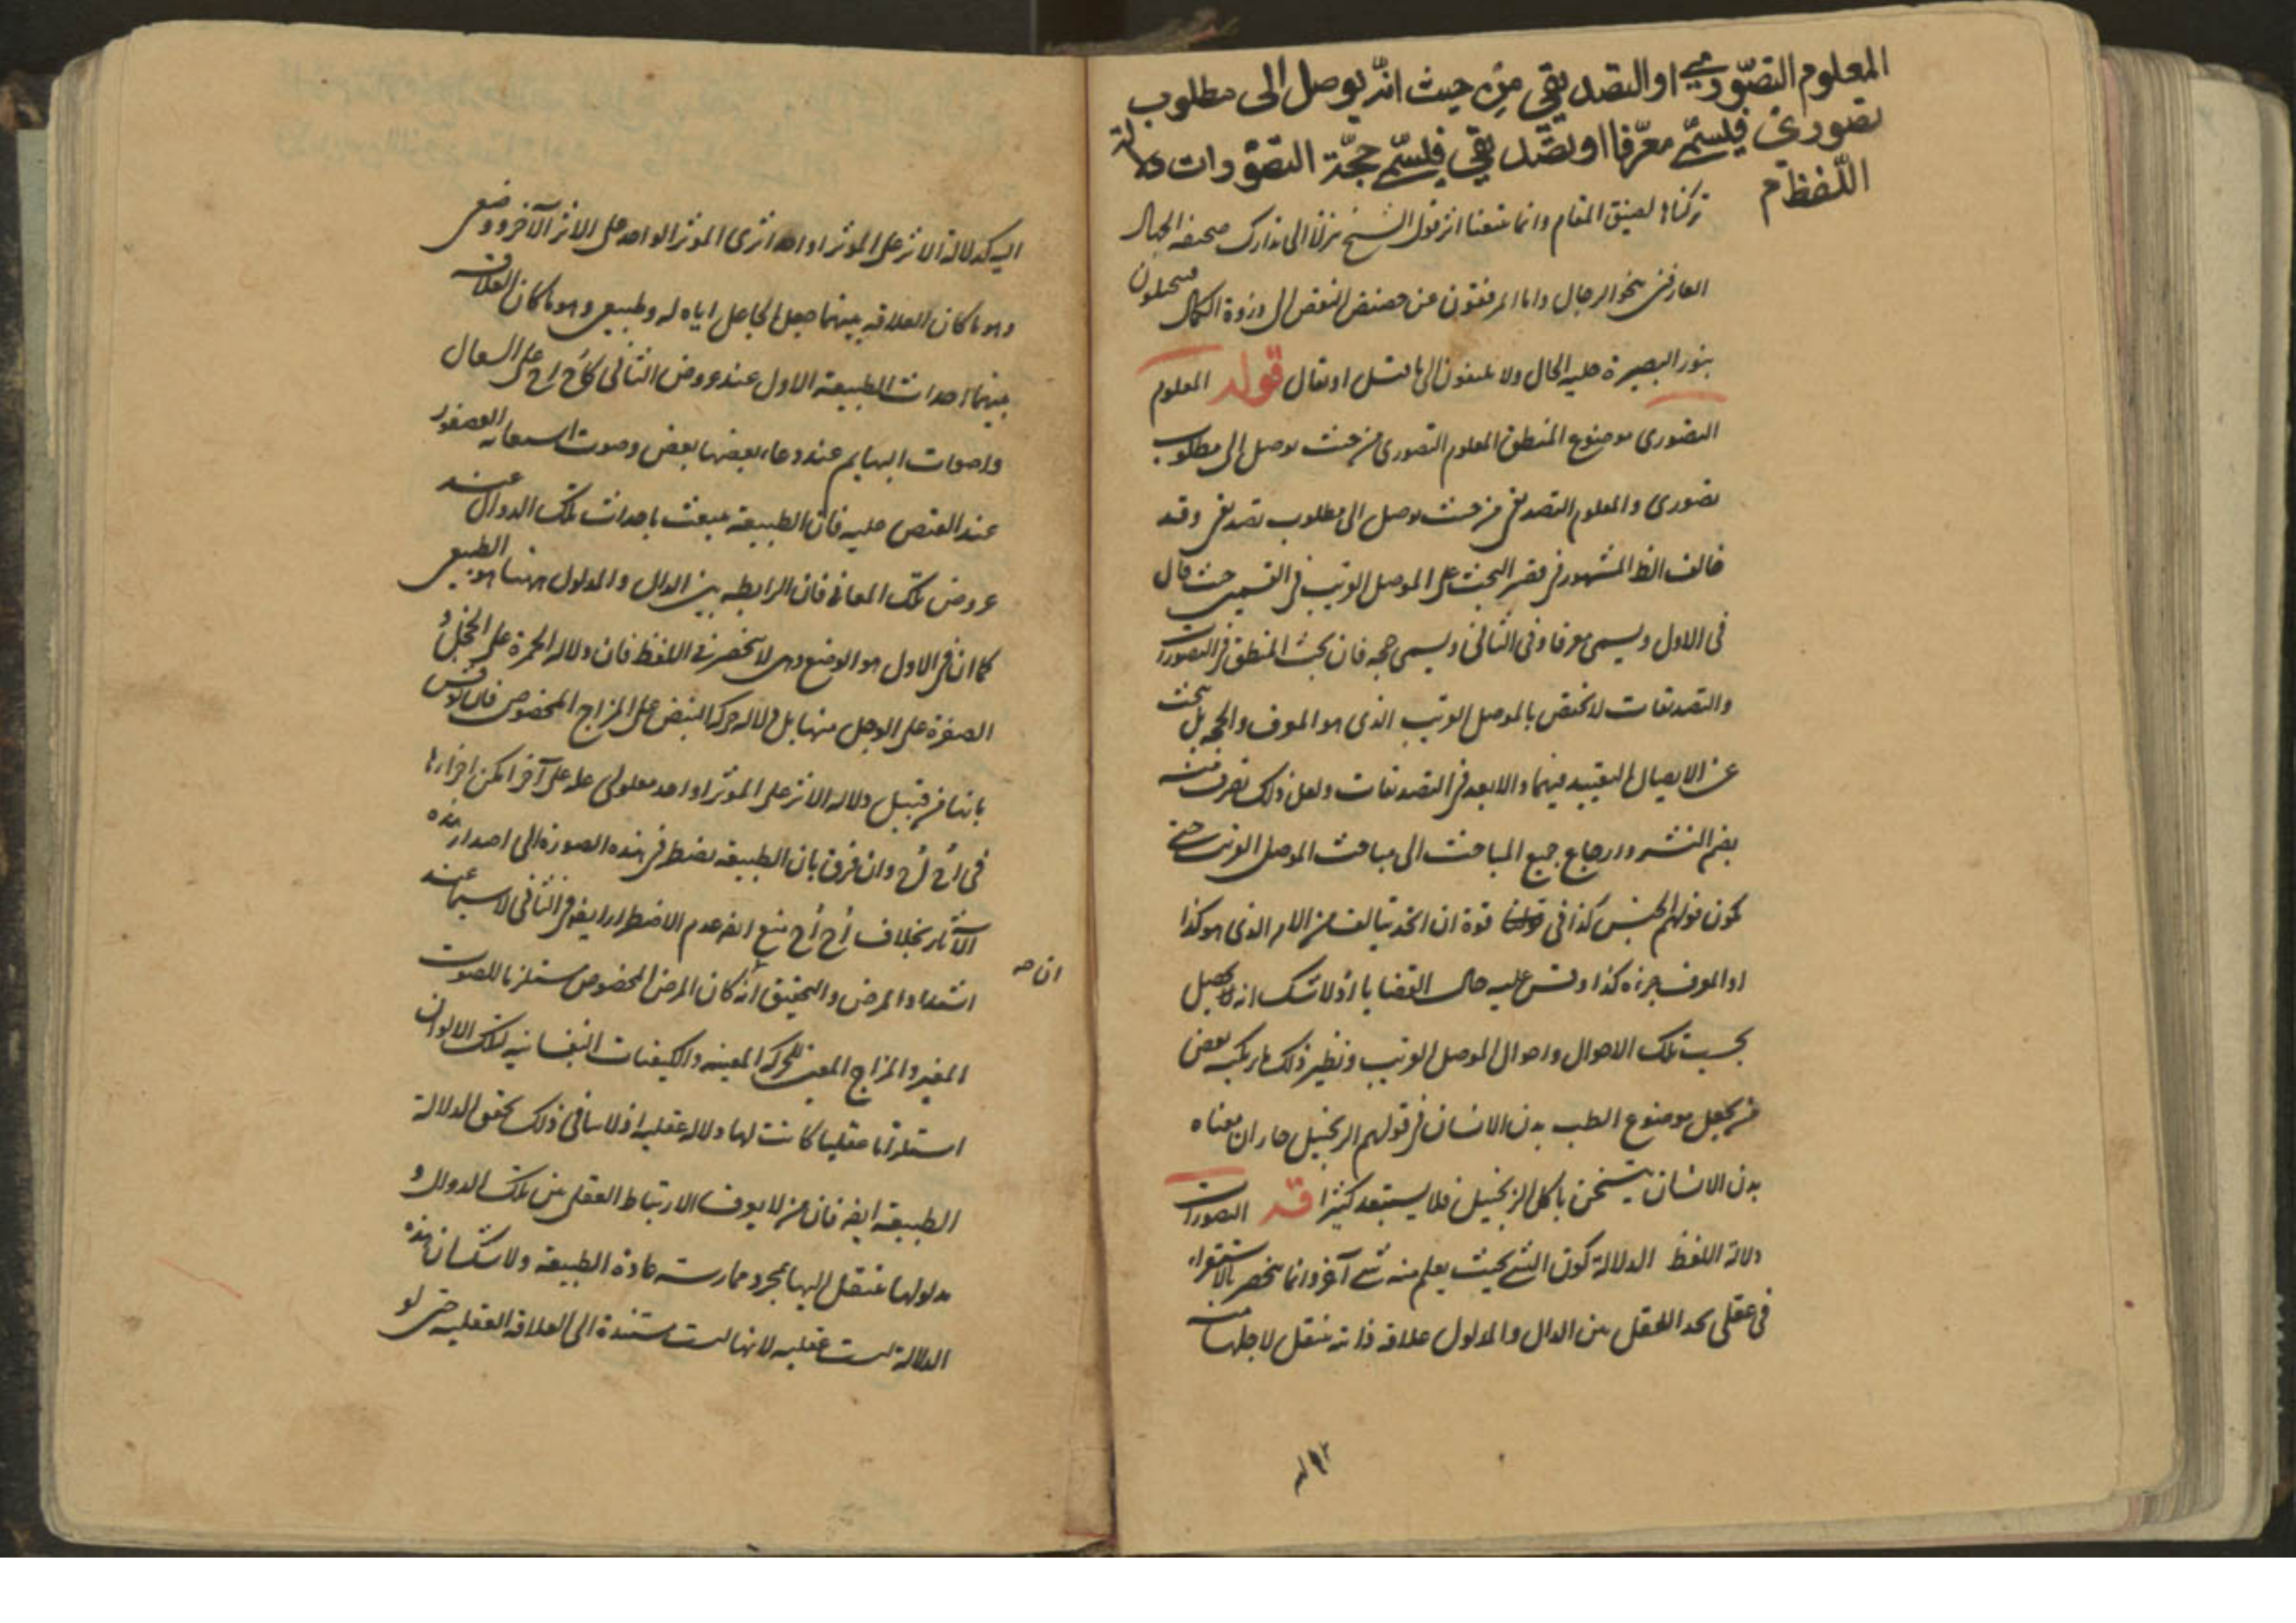 المعلوم التصوّري او التصديقي من حيث انّه يوصل الى مطلوب
تصوري فليسمّ معرّفا او تصديقي فليسمّ حجّة التصوّرات دلالة
اللّفظ م
تركناها لضيق المقام وانما تتبعنا اثر قول الشيخ نزلنا الى تدارك
العارفين بنحو الرجال واما المرتقون عن حضيض النقص الى ذروة الكمال
بنور البصيرة جلية الحال ولا يلتفتون الى ما قيل او يقال قوله المعلوم
التصوري موضوع المنطق المعلوم التصوري من حيث يوصل الى مطلوب
تصوري والمعلوم التصديقي من حيث يوصل الى مطلوب تصديقي وقد
خالف الظ المشهور في قصر البحث على الموصل القريب في القسمين حيث قال
في الاول ويسمى معرفا وفي الثاني ويسمى حجة فان بحث المنطق في التصورات
والتصديقات لا يختص بالموصل القريب الذي هو المعرف والحجة بل يبحث
عن الايصال البعيد فيهما والابعد في التصديقات ولعل ذلك تصرف منه
بضم النشر وارجاع جميع المباحث الى مباحث الموصل القريب حتى
يكون قولهم الجنس كذا في قوة ان الحد يتالف من الامر الذي هو كذا
او المعرف جزءه كذا وقس عليه حال القضايا اذ لا شك انه يحصل
بحسب تلك الاحوال واحوال الموصل القريب ونظير ذلك ما يرتكبه بعض
من يجعل موضوع الطب بدن الانسان في قولهم الزنجبيل حار ان معناه
بدن الانسان يتسخن باكل الزنجبيل فلا يستبعد كثيرا قه التصورات
دلالة اللفظ الدلالة كون الشئ بحيث يعلم منه شئ آخر وانما ينحصر بالاستقراء
في عقلي يجد العقل بين الدال والمدلول علاقة ذاتية ينتقل لاجلها منه
اليه كدلالة الاثر على المؤثر او احد اثرى المؤثر الواحد على الاثر الآخر ووضعي
وهو ما كان العلاقة بينهما جعل الجاعل اياه له وطبيعي وهو ما كان العلاقة
بينهما احداث الطبيعة الاول عند عروض الثاني كأح اح على السعال
واصوات البهايم عند دعاء بعضها بعض وصوت استغاثة العصفور
عند القبض عليه فان الطبيعة تنبعث باحداث تلك الدوال عند
عروض تلك المعاني فان الرابطة بين الدال والمدلول ههنا هو الطبيعي
كما ان في الاول هو الوضع وهي لا تنحصر في اللفظ فان دلالة الحمرة على الخجل و
الصفرة على الوجل منها بل دلالة حركة النبض على المزاج المخصوص فان نوقش
بانها من قبيل دلالة الاثر على المؤثر او احد معلولى علة على آخر امكن اجراءها
في اح اح وان فرق بان الطبيعة تضطر في هذه الصورة الى اصدار هذه
الآثار بخلاف اح اح منع انه عدم الاضطرار ايضا في الثاني لا سيما عند
اشتداد المرض والتحقيق انه كان المرض المخصوص مستلزما للصوت
ان صه
المعين والمزاج المعين للحركة المعينة والكيفيات النفسانية لتلك الالوان
استلزاما عقليا كانت لها دلالة عقلية اذ لا ينافي ذلك تحقق الدلالة
الطبيعية ايضا فان من لا يعرف الارتباط العقلي بين تلك الدوال و
مدلولها ينتقل اليها بمجرد ممارسة عادة الطبيعة ولا شك ان هذه
الدلالة ليست عقلية لانها ليست مستندة الى العلاقة العقلية حتى لو